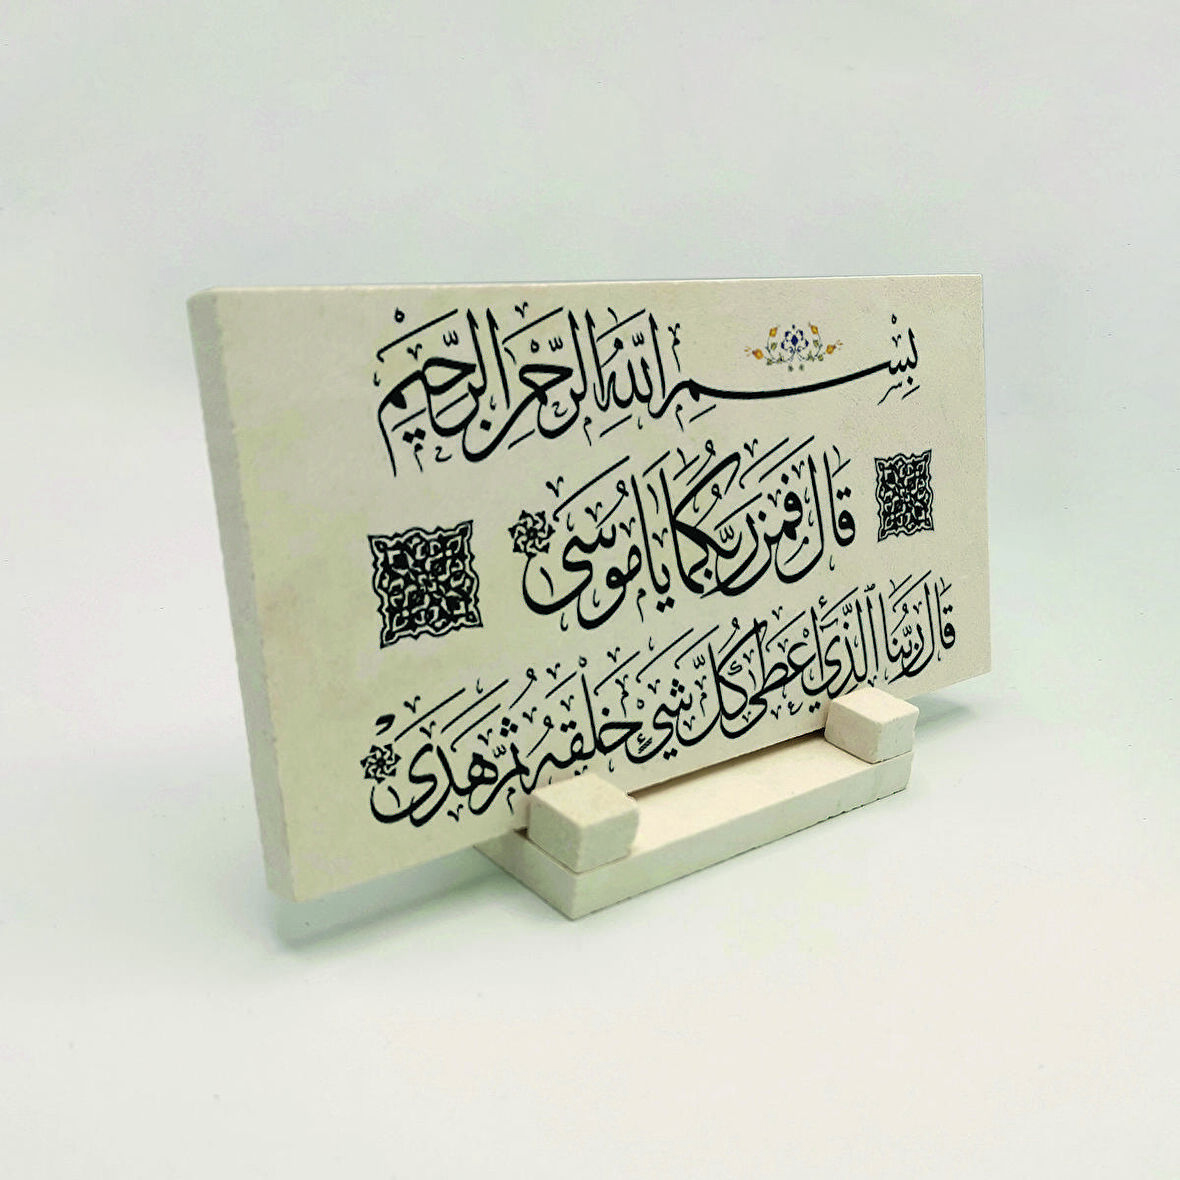 بِسْمِ اللَّهِ الرَّحْمَنِ الرَّحِيمِ
قَالَ فَمَن رَّبُّكُمَا يَا مُوسَى
قَالَ رَبُّنَا ٱلَّذِي أَعْطَى كُلَّ شَيْءٍ خَلْقَهُ ثُمَّ هَدَى